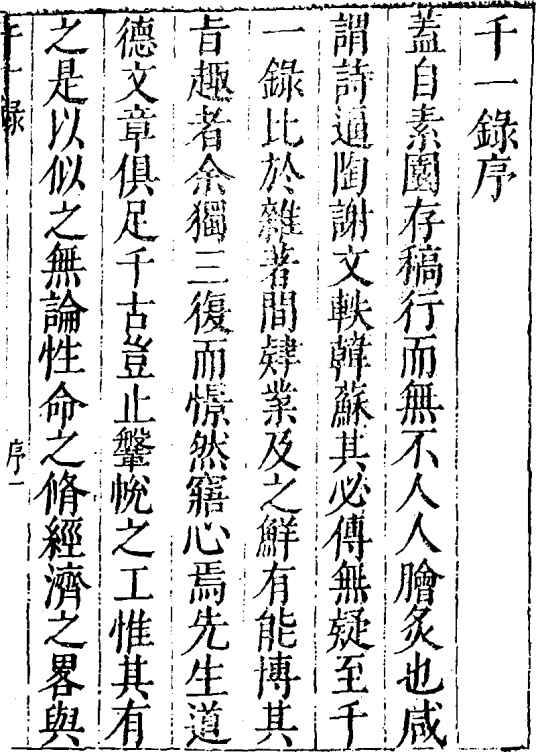 千一錄序
蓋自素園存稿行而無不人人膾炙也咸
謂詩逼陶謝文軼韓蘇其必傳無疑至千
一錄比於雜著間肄業及之鮮有能博其
旨趣者余獨三復而憬然寤心焉先生道
德文章俱足千古豈止鞶帨之工惟其有
之是以似之無論性命之脩經濟之畧與
千一錄
序一